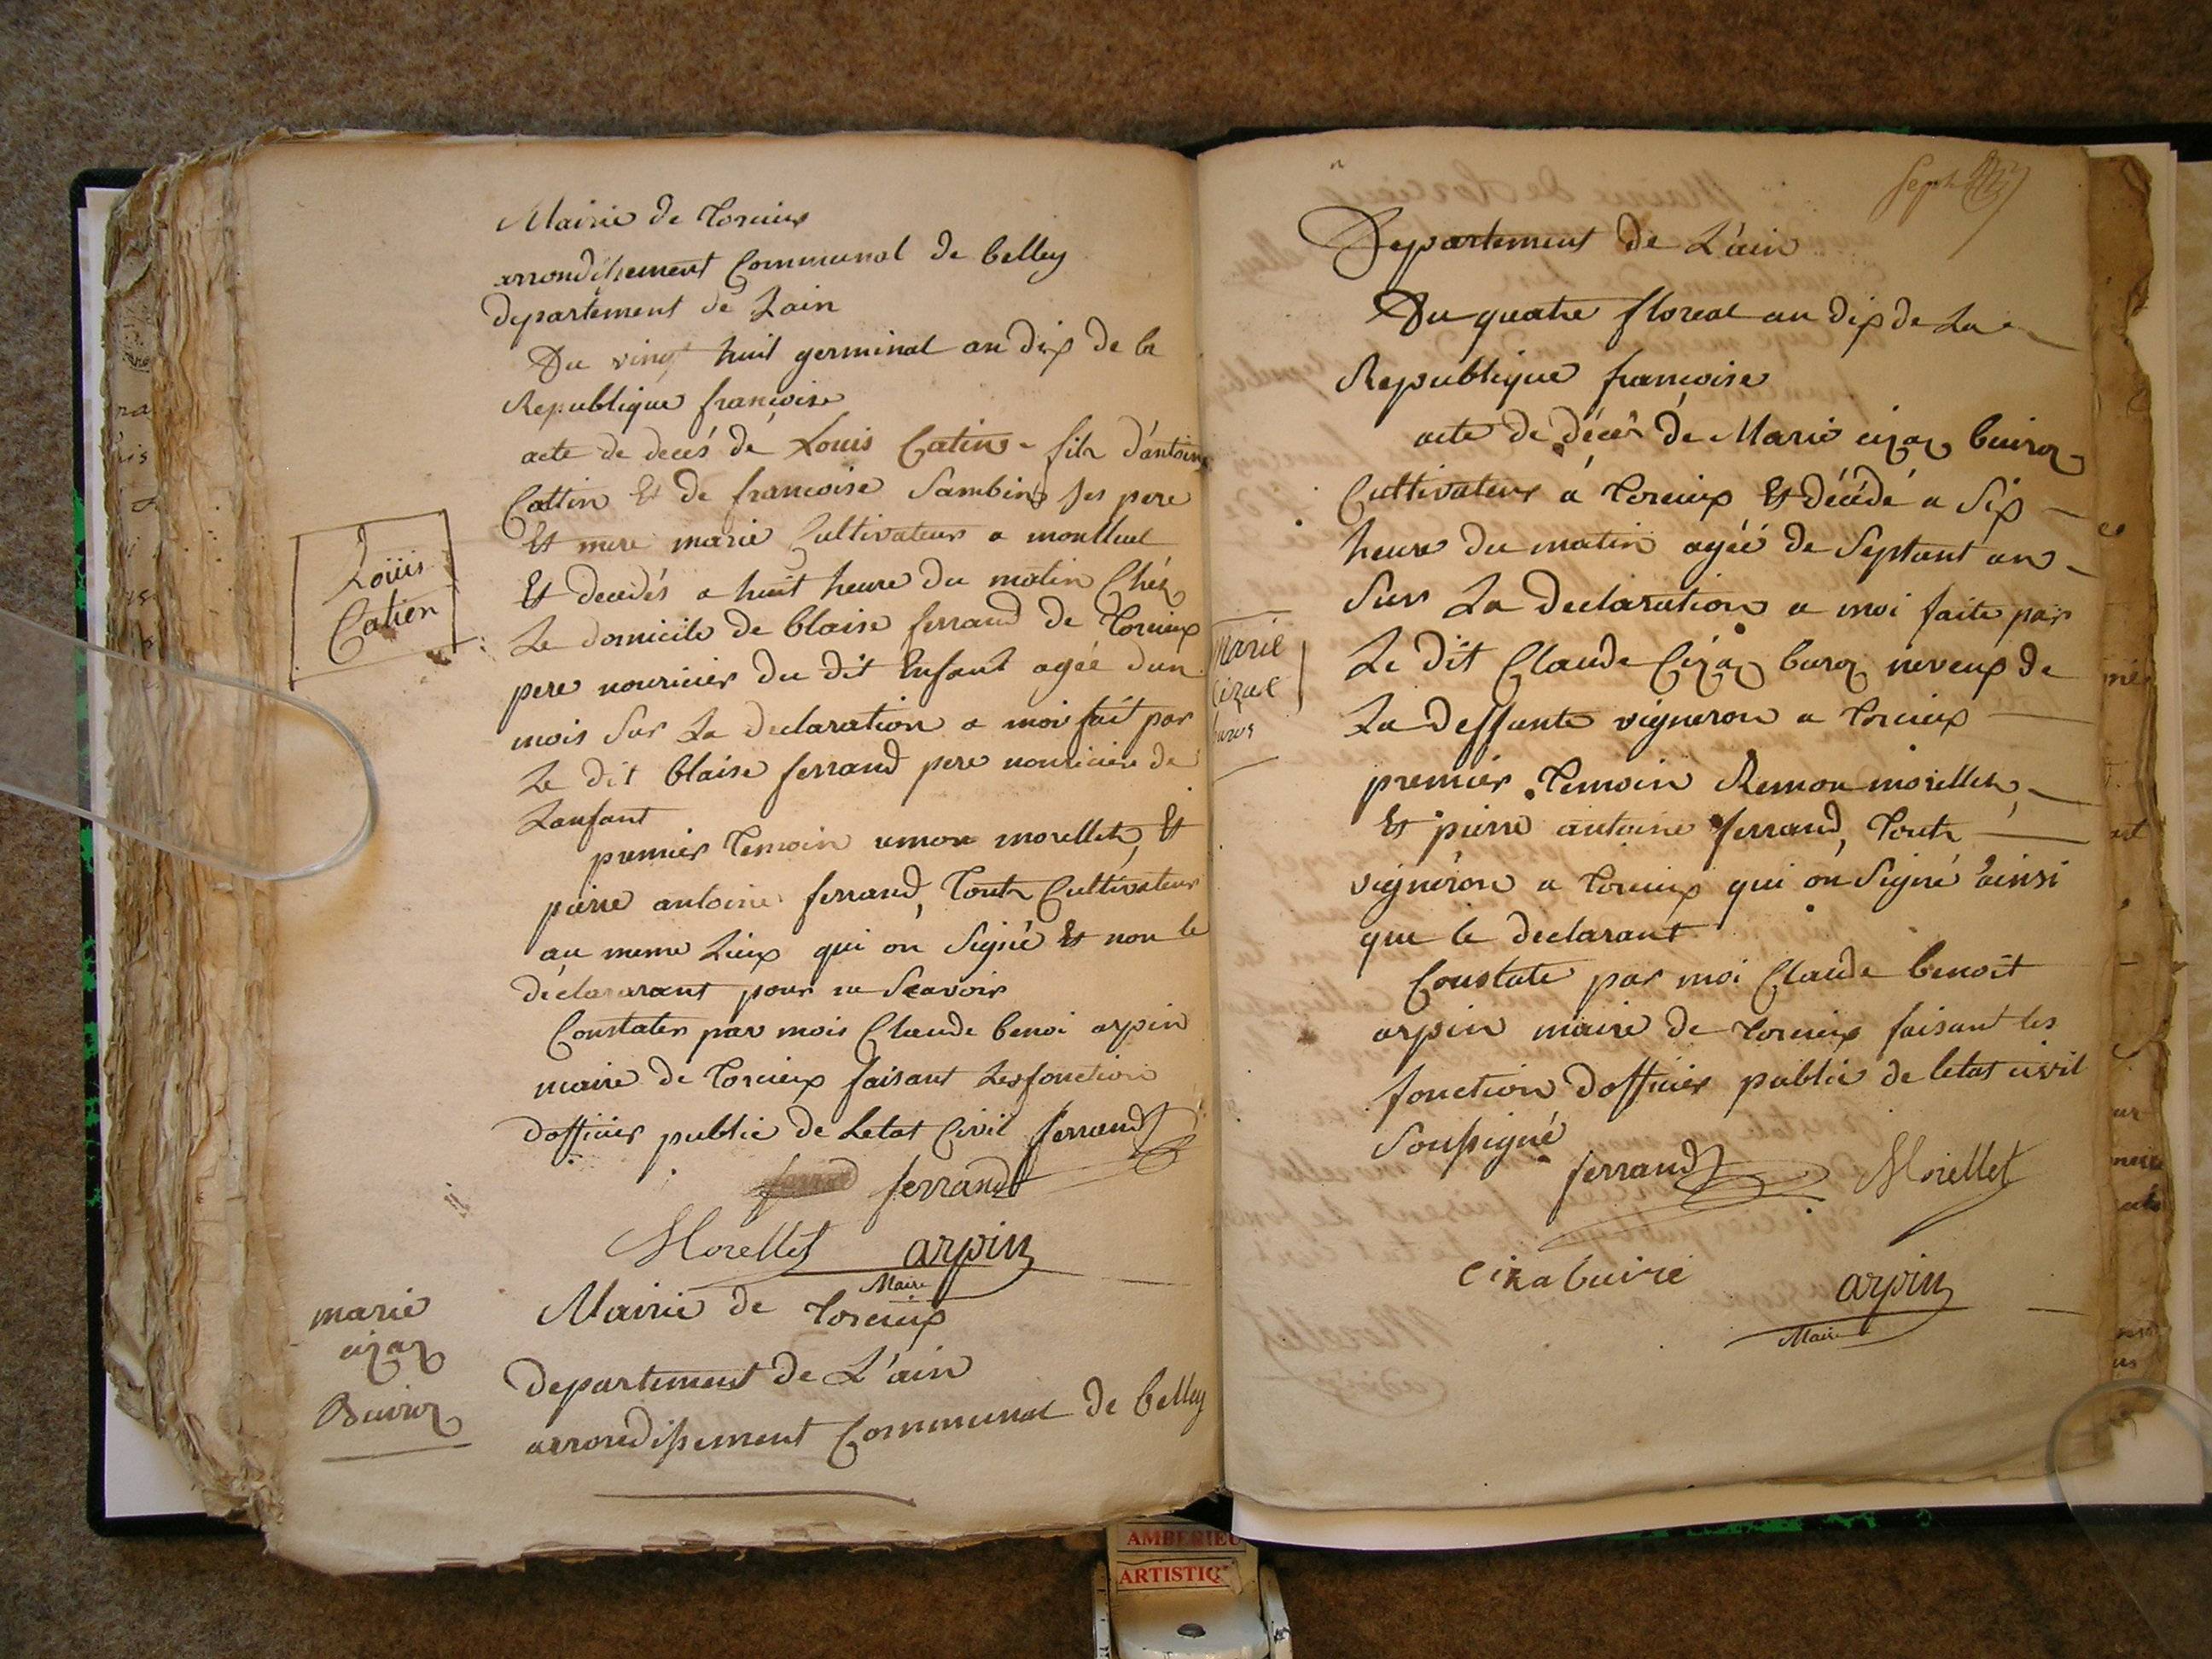 Mairie de Torcieux
arrondissement Communal de belley
departement de Lain
Du vingt huit germinal an dix de la
Republique francoise
acte de decés de Louis Catin fils d'antoine
Cattin Et de francoise Sambin ses pere
Et mere marié Cultivateur a montluel
Et decedés a huit heure du matin Chéz
Le domicile de blaise ferrand de Torcieux
pere nouricier du dit Enfant agée d'un
mois Sur La declaration a moi fait par
Le dit blaise ferrand pere nouricier de
Lanfant
premier Temoin remon morellet, Et
pierre antoine ferrand, Touts Cultivateur
au meme Lieux qui on Signé Et non le
déclararant pour ne Scavoir
Constater par mois Claude benoi arpin
maire de Torcieux faisant Les fonction
dofficier public de Letat Civil ferrand
ferrand
Morellet arpin
Maire
Louis
Catien
marie
cizaz
Buiroz
Mairie de Torcieux
departement de L'ain
arrondissement Communal de belley
Departement de L'ain
Du quatre floreal an dix de La
Republique francoise
acte de décés de Marie cizaz buiroz
Cultivateur á Torcieux Et décédé a Six
heure du matin agéé de Septant an
Sur La declaration a moi faite par
Le dit Claude Cizaz buroz neveux de
La deffunte vigneron a Torcieux
premier Temoin Remon morellet
Et pierre antoine ferrand, Touts
vigneron a Torcieux qui on Signé ainsi
que le declarant
Constate par moi Claude benoît
arpin maire de Torcieux faisant les
fonction dofficier public de letat civil
Soussigné
ferrand Morellet
cizabuire arpin
Maire
Marie
Cizaz
buros
AMBERIEU
ARTISTIQ